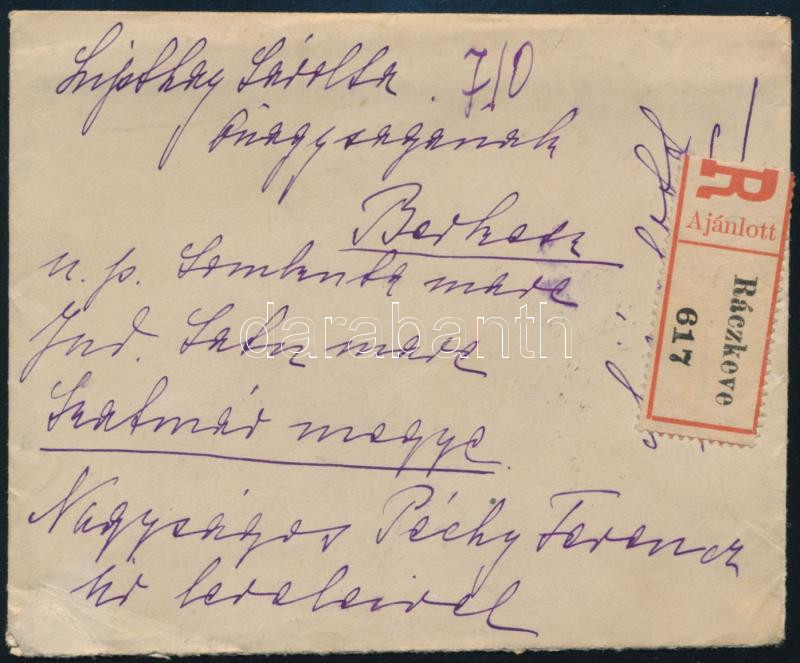 Lipthay Sárolta 7/0
Őnagyságának
Berkesz
u. p. Somkuta mare
Jud. Satu mare
Szatmár megye
Nagyságos Péchy Ferencz
úr leveleivel
R
Ajánlott
Ráczkeve
617
darabanth